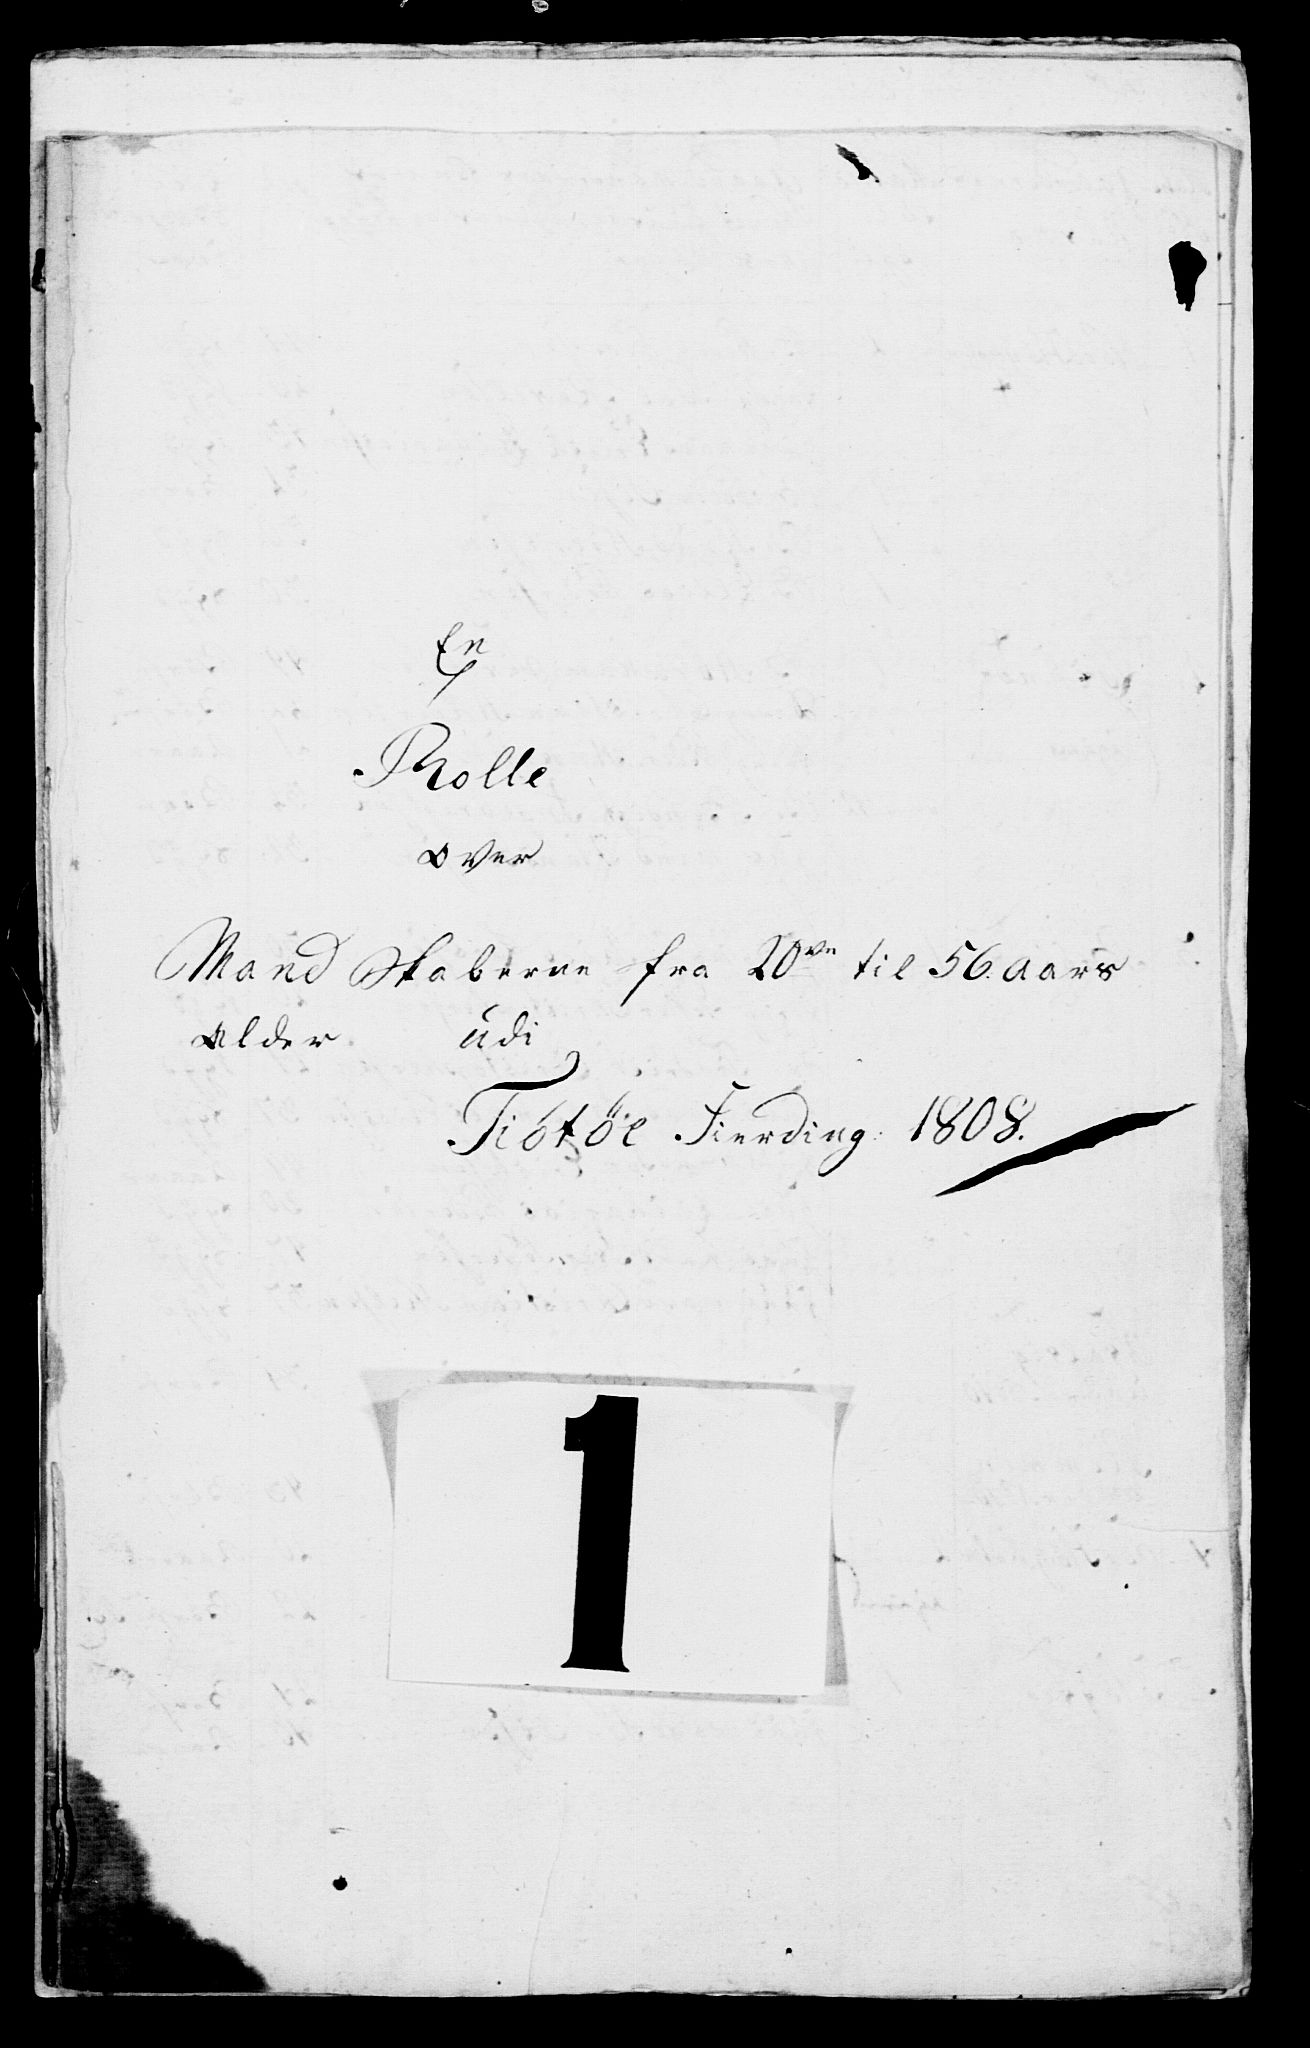 En
Rolle
over
Mand Skaberne fra 20ve til 56. aars
Alder udi
Tiøtøe Fierding: 1808.
1